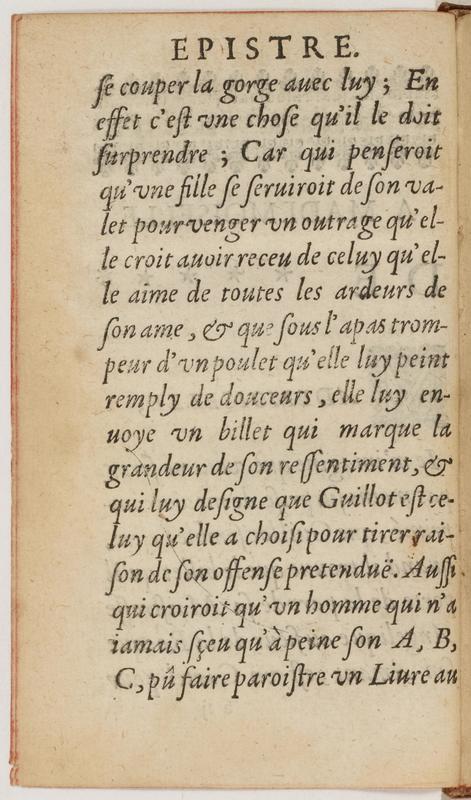 EPISTRE.
ſe couper la gorge auec luy ; En
effet c'eſt vne choſe qu'il le doit
ſurprendre ; Car qui penſeroit
qu'vne fille ſe ſeruiroit de ſon va-
let pour venger vn outrage qu'el-
le croit auoir receu de celuy qu'el-
le aime de toutes les ardeurs de
ſon ame, & que ſous l'apas trom-
peur d'vn poulet qu'elle luy peint
remply de douceurs, elle luy en-
uoye vn billet qui marque la
grandeur de ſon reſſentiment, &
qui luy deſigne que Guillot eſt ce-
luy qu'elle a choiſi pour tirer rai-
ſon de ſon offenſe pretenduë. Auſſi
qui croiroit qu'vn homme qui n'a
iamais ſçeu qu'à peine ſon A, B,
C, pû faire paroiſtre vn Liure au